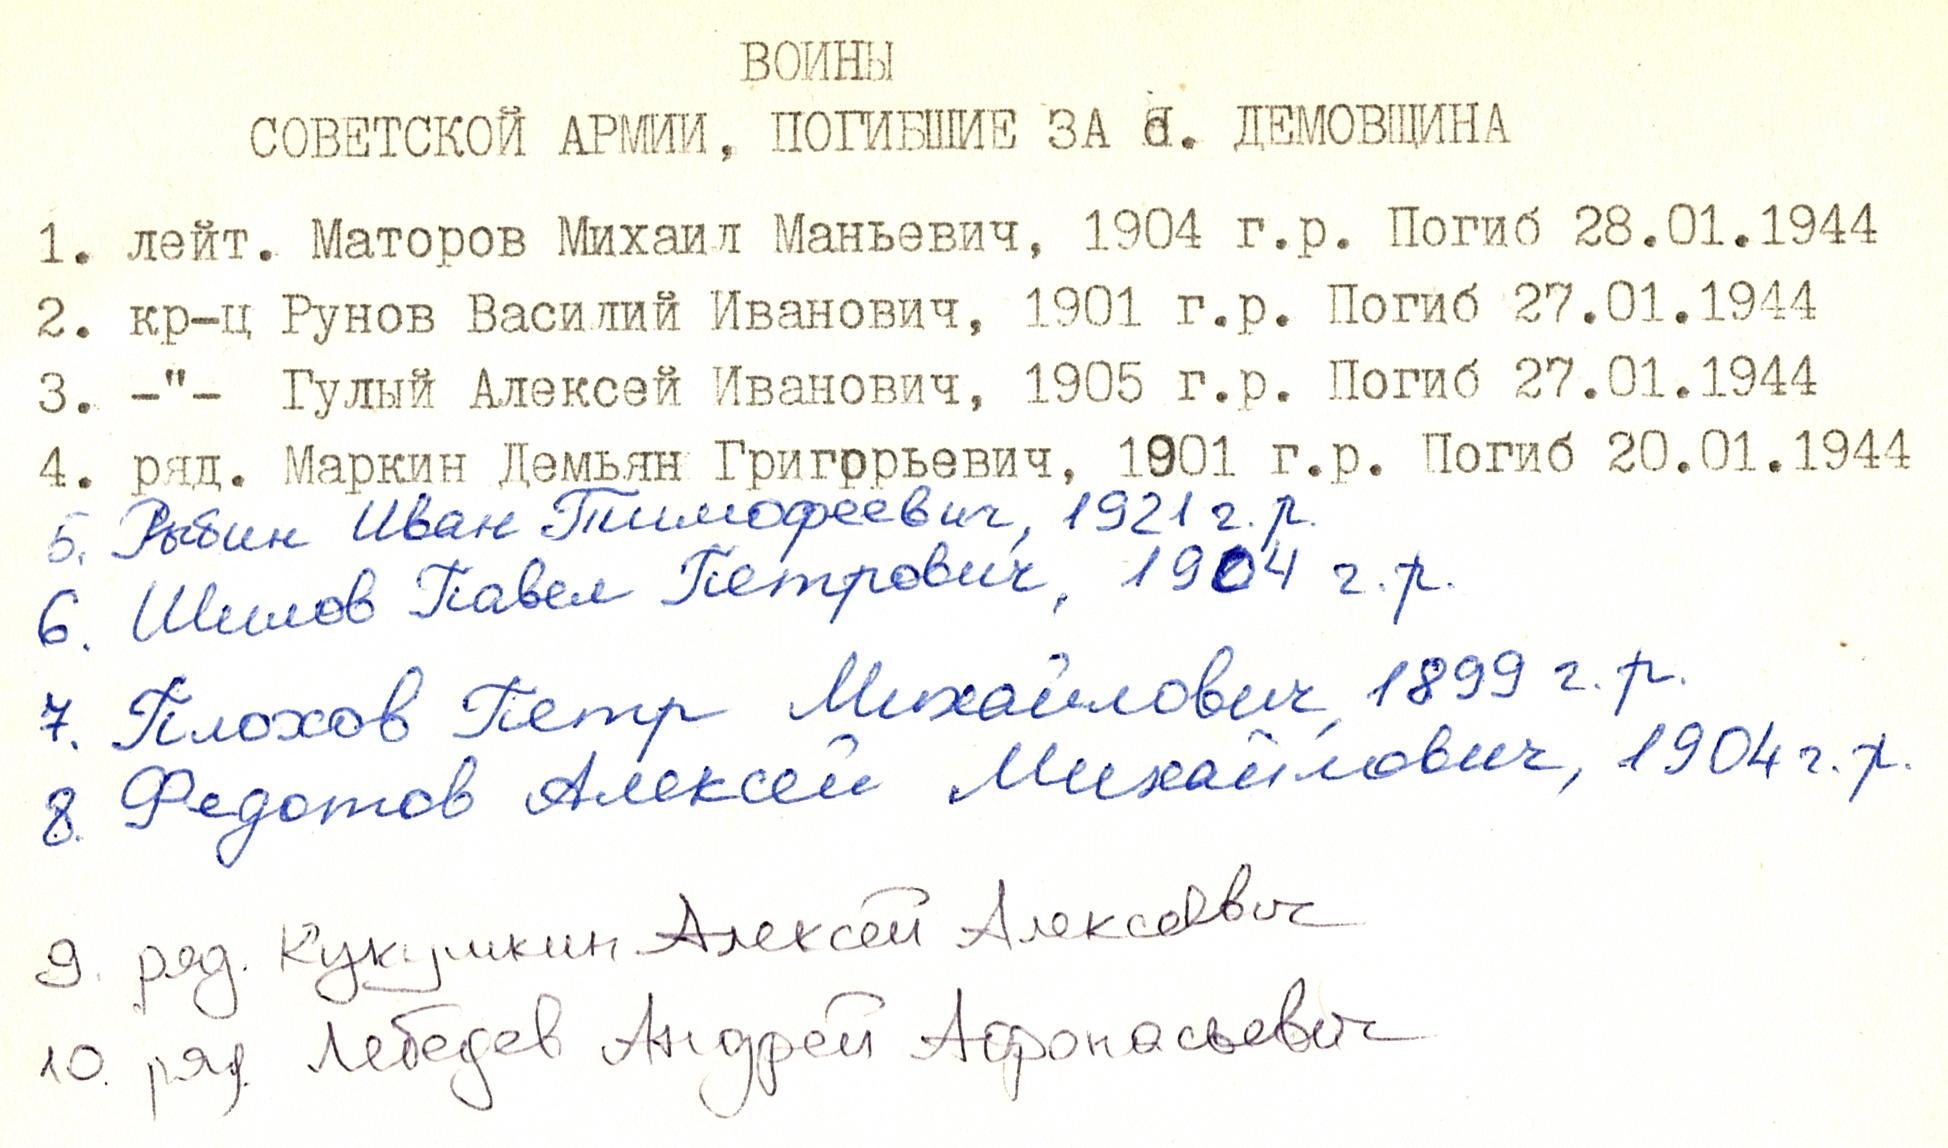 ВОИНЫ
СОВЕТСКОЙ АРМИИ, ПОГИБШИЕ ЗА д. ДЕМОВЩИНА
1. лейт. Маторов Михаил Маньевич, 1904 г.р. Погиб 28.01.1944
2. кр-ц Рунов Василий Иванович, 1901 г.р. Погиб 27.01.1944
3. -"- Гулый Алексей Иванович, 1905 г.р. Погиб 27.01.1944
4. ряд. Маркин Демьян Григорьевич, 1901 г.р. Погиб 20.01.1944
5. Рыбин Иван Тимофеевич, 1921 г.р.
6. Шилов Павел Петрович, 1904 г.р.
7. Плохов Петр Михайлович, 1899 г.р.
8. Федотов Алексей Михайлович, 1904 г.р.
9. ряд. Кукушкин Алексей Алексеевич
10. ряд. Лебедев Андрей Афонасьевич